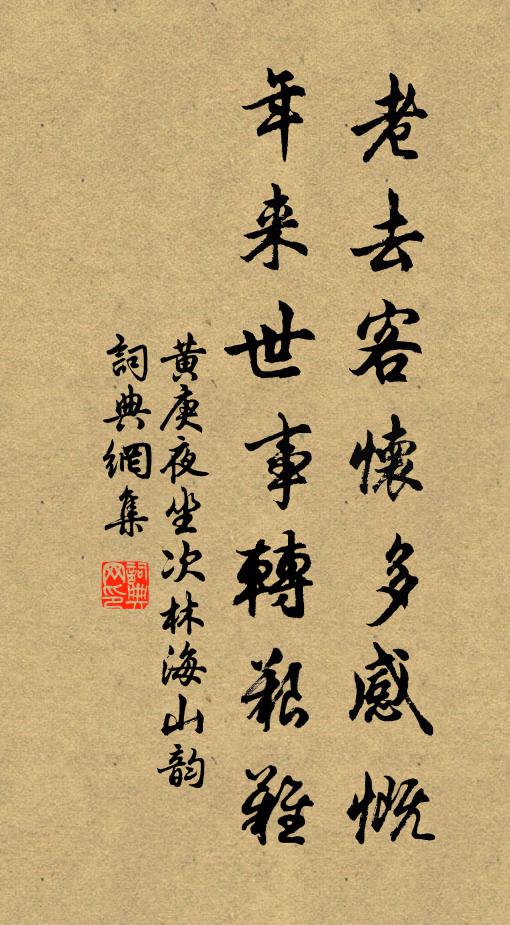 老去客懷多感慨
年来世事轉艱難
黄庚夜坐次林海山韵
詞典網集
詞典網印